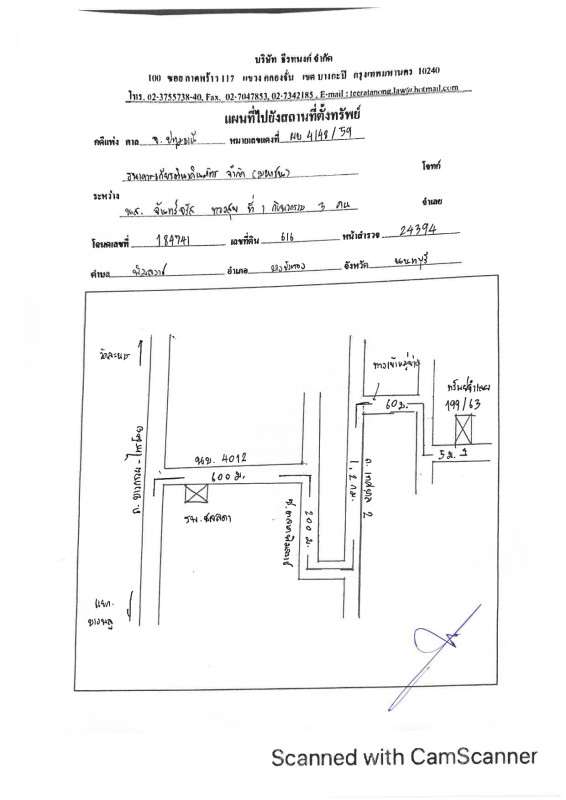 บริษัท ธีรทนงค์ จำกัด
100 ซอย ลาดพร้าว 117 แขวง คลองจั่น เขต บางกะปิ กรุงเทพมหานคร 10240
โทร. 02-3755738-40, Fax. 02-7047853, 02-7342185 , E-mail : teeratanong.law@hotmail.com
แผนที่ไปยังสถานที่ตั้งทรัพย์
คดีแพ่ง ศาล หมายเลขแดงที่ ผบ 4148/59
ธนาคารเกียรตินาคินภัทร จำกัด (มหาชน) โจทก์
ระหว่าง
ที่ 1 กับพวกรวม 3 คน จำเลย
โฉนดเลขที่ 184741 เลขที่ดิน 616 หน้าสำรวจ 24394
ตำบล พิมลราช อำเภอ บางบัวทอง จังหวัด นนทบุรี
วัดละหาร
ทางเข้าหมู่บ้าน
ทรัพย์จำนอง
199/63
60 ม.
5 ม.
นบ. 4012
600 ม.
รพ. ชลลดา
200 ม.
1.2 กม.
ถ. บางกรวย - ไทรน้อย
แยก
บางพลู
Scanned with CamScanner